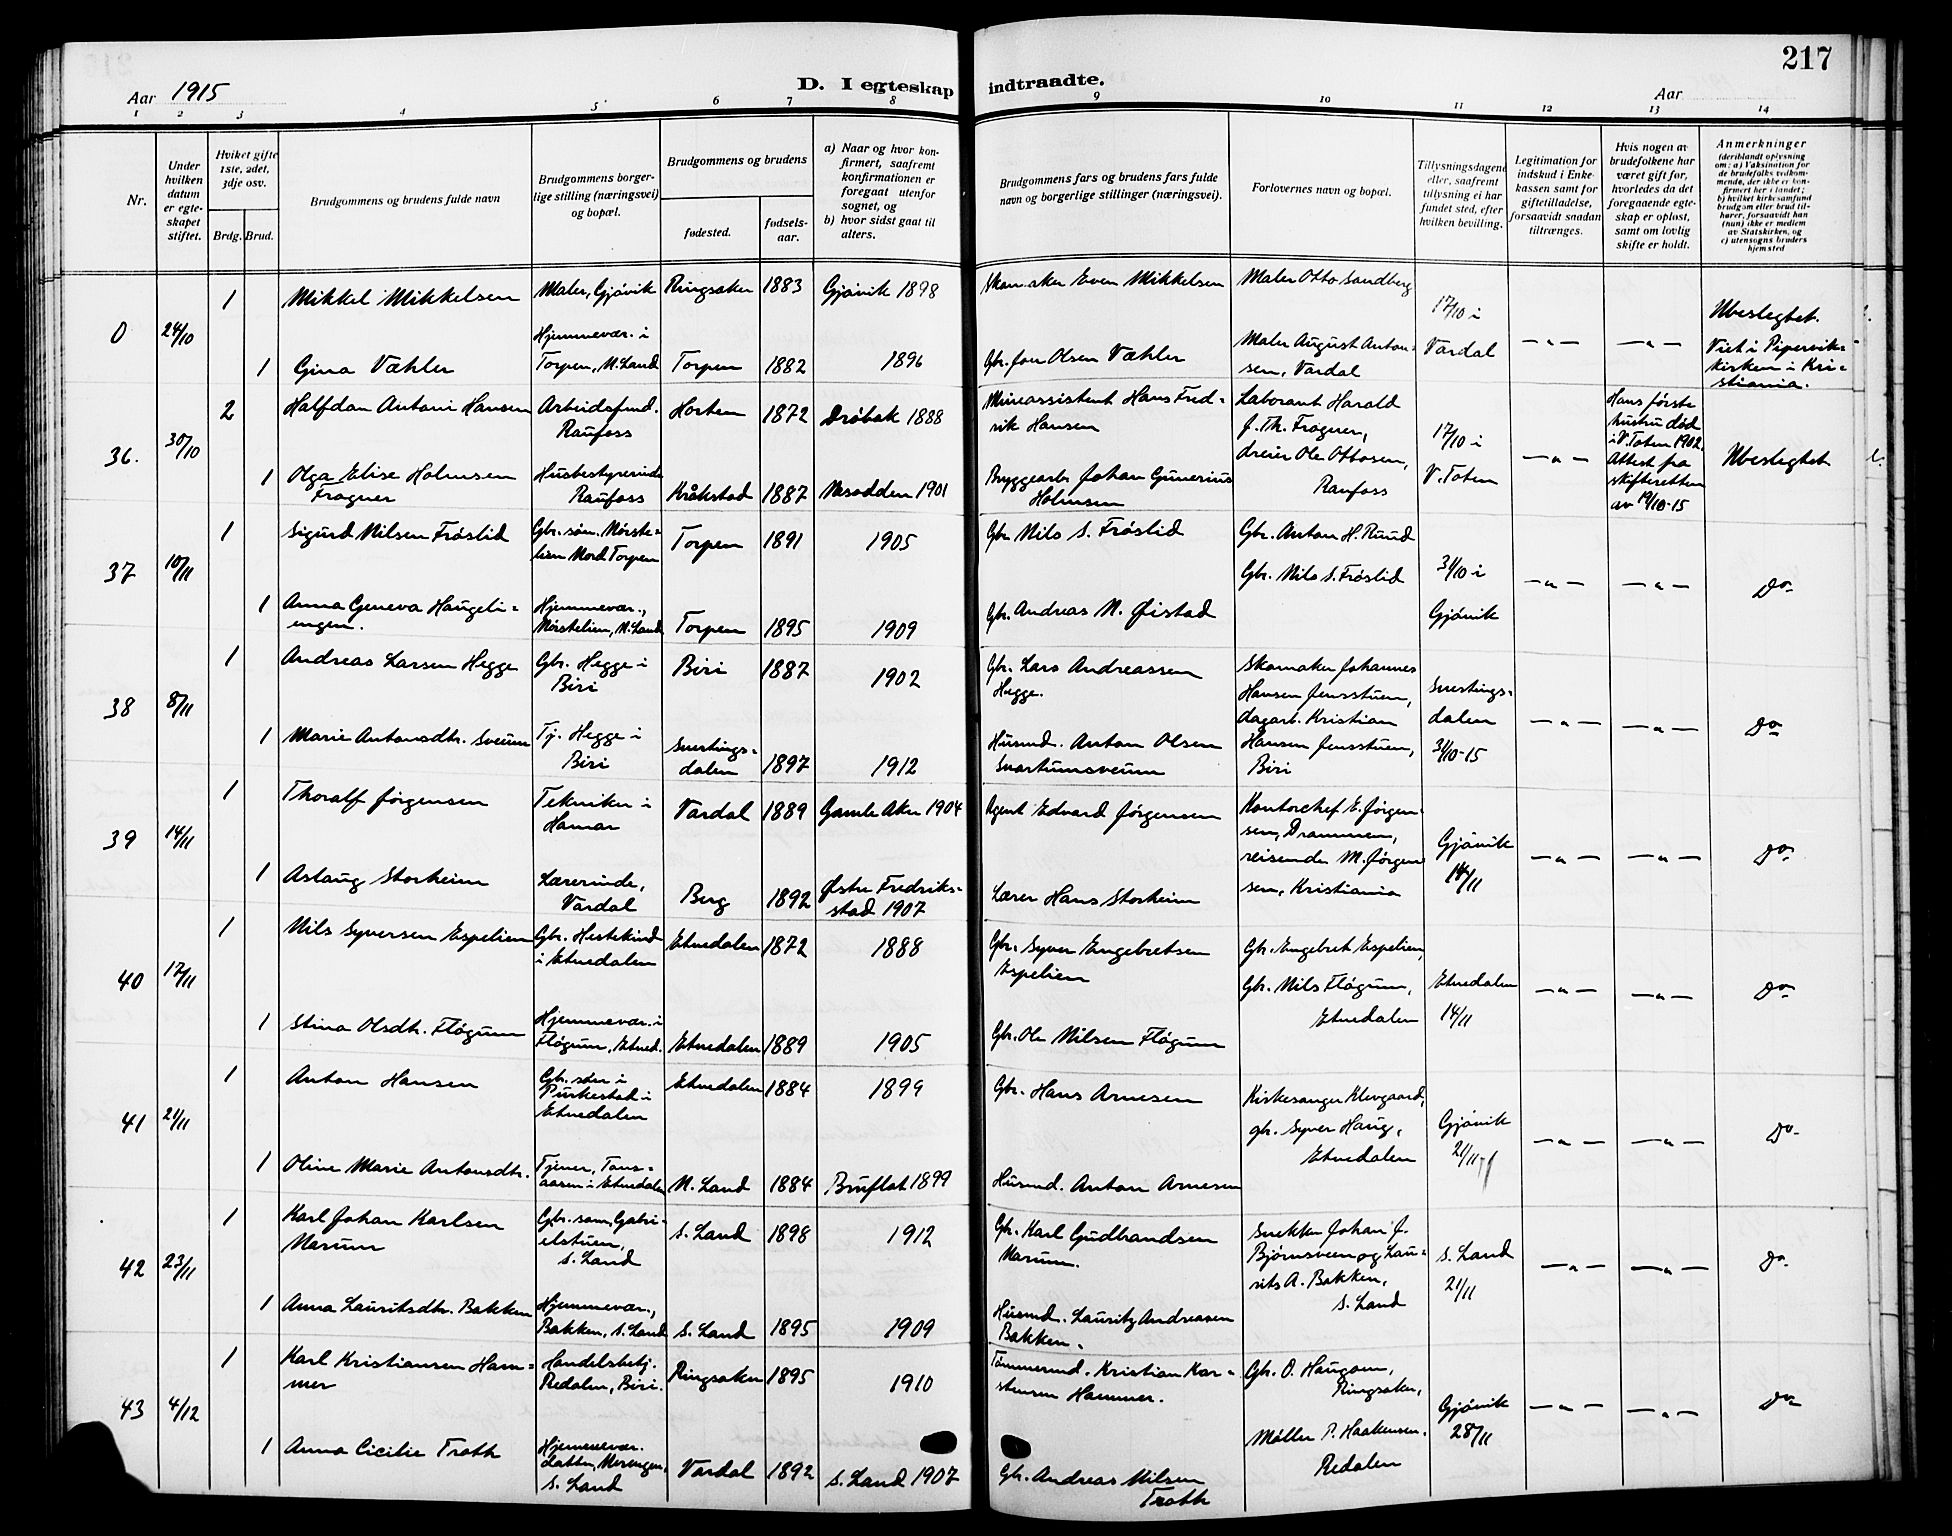 217
Aar 1915
D. I egteskap indtraadte.
Aar
1 2 3 4 5 6 7 8 9 10 11 12 13 14
Nr.
Under hvilken datum er egteskapet stiftet.
Hvilket gifte 1ste, 2det, 3dje osv.
Brdg. Brud.
Brudgommens og brudens fulde navn
Brudgommens borgerlige stilling (næringsvei) og bopæl.
Brudgommens og brudens
fødested.
fødselsaar.
a) Naar og hvor konfirmert, saafremt konfirmationen er foregaat utenfor sognet, og
b) hvor sidst gaat til alters.
Brudgommens fars og brudens fars fulde navn og borgerlige stillinger (næringsvei).
Forlovernes navn og bopæl.
Tillysningsdagene eller, saafremt tillysning ei har fundet sted, efter hvilken bevilling.
Legitimation for indskud i Enkekassen samt for giftetilladelse, forsaavidt saadan tiltrænges.
Hvis nogen av brudefolkene har været gift før, hvorledes da det foregaaende egteskap er opløst, samt om lovlig skifte er holdt.
Anmerkninger
(deriblandt oplysning om: a) Vaksination for de brudefolks vedkommende, der ikke er konfirmert her i landet; b) hvilket kirkesamfund brudgom eller brud tilhører, forsaavidt han (hun) ikke er medlem av Statskirken, og c) utensogns bruders hjemsted
0 24/10
1 Mikkel Mikkelsen Maler, Gjövik Ringsaker 1883 Gjövik 1898 Skomaker Even Mikkelsen Maler Otto Sandberg
17/10 i Vardal — " — — " — Ubeslegtet. Viet i Piperviks-kirken i Kristiania.
1 Gina Væhler Hjemmevær. i Torpen, N. Land Torpen 1882 1896 Gbr. Jon Olsen Væhler Maler August Antonsen, Vardal
36. 30/10
2 Halfdan Antoni Hansen Arbeidsfmd. Raufoss Horten 1872 Dröbak 1888 Mineassistent Hans Fredrik Hansen Laborant Harald J. Th. Frogner, dreier Ole Ottosen, Raufoss
17/10 i V. Toten — " — Hans förste hustru död i V. Toten 1902. Attest fra skifteretten av 19/10-15 Ubeslegtet
1 Olga Elise Holmsen Frogner Husbestyrerinde Raufoss Kråkstad 1887 Nesodden 1901 Bryggearb. Johan Gunerius Holmsen
37 10/11
1 Sigurd Nilsen Fröslid Gbr. søn. Mørstelien Nord. Torpen Torpen 1891 1905 Gbr Nils S. Fröslid Gbr. Anton H. Ruud
Gbr. Nils S. Fröslid 31/10 i Gjövik — " — — " — Do
1 Anna Geneva Haugeliengen. Hjemmevær., Mørstelien, N. Land Torpen 1895 1909 Gbr. Andreas N. Øistad
38 8/11
1 Andreas Larsen Hegge Gbr. Hegge i Biri Biri 1887 1902 Gbr. Lars Andreassen Hegge. Skomaker Johannes Hansen Jensstuen, dagarb. Kristian Hansen Jensstuen, Biri
Snertingsdalen 31/10-15 — " — — " — Do
1 Marie Antonsdtr. Sveum Tj. Hegge i Biri Snertingsdalen 1897 1912 Husmd. Anton Olsen Svartumsveum
39 14/11
1 Thoralf Jörgensen Tekniker i Hamar Vardal 1889 Gamle Aker 1904 Agent Edvard Jörgensen Kontorchef E. Jörgensen, Drammen, reisende M. Jörgensen, Kristiania
Gjövik 14/11 — " — — " — Do
1 Aslaug Storheim Lærerinde, Vardal Berg 1892 Østre Fredrikstad 1907 Lærer Hans Storheim
40 17/11
1 Nils Syversen Espelien Gbr. Hestekind i Etnedalen Etnedalen 1872 1888 Gbr. Syver Engebretsen Espelien Gbr. Engebret Espelien, Gbr. Nils Flögum, Etnedalen
Etnedalen 14/11 — " — — " — Do
1 Stina Olsdtr. Flögum Hjemmevær. i Flögum, Etned. Etnedalen 1889 1905 Gbr. Ole Nilsen Flögum
41 21/11
1 Anton Hansen Gbr. søn i Purkestad i Etnedalen Etnedalen 1884 1899 Gbr. Hans Arnesen Kirkesanger Klevgaard, gbr. Syver Haug, Etnedalen
Gjövik 21/11 — " — — " — Do
1 Oline Marie Antonsdtr. Tjener, Etnedalen N. Land 1884 Bruflat 1899 Husmd. Anton Arnesen
42 23/11
1 Karl Johan Karlsen Marum Gbr. søn, Gabrielstuen, S. Land S. Land 1898 1912 Gbr. Karl Gudbrandsen Marum. Snekker Johan J. Bjørnsveen og Laurits A. Bakken, S. Land
S. Land 21/11 — " — — " — Do
1 Anna Lauritsdtr. Bakken Hjemmevær., Bakken, S. Land S. Land 1895 1909 Husmd. Lauritz Andreasen Bakken.
43 4/12
1 Karl Kristiansen Hammer Handelsbetj. Redalen, Biri. Ringsaker 1895 1910 Tömmermd. Kristian Karstensen Hammer. Gbr. O. Haugom, Ringsaker,
Möller P. Haakensen. Redalen Gjövik 28/11 — " — — " — Do
1 Anna Cicilie Troth Hjemmevær. S. Land Vardal 1892 S. Land 1907 Gbr. Andreas Nilsen Troth